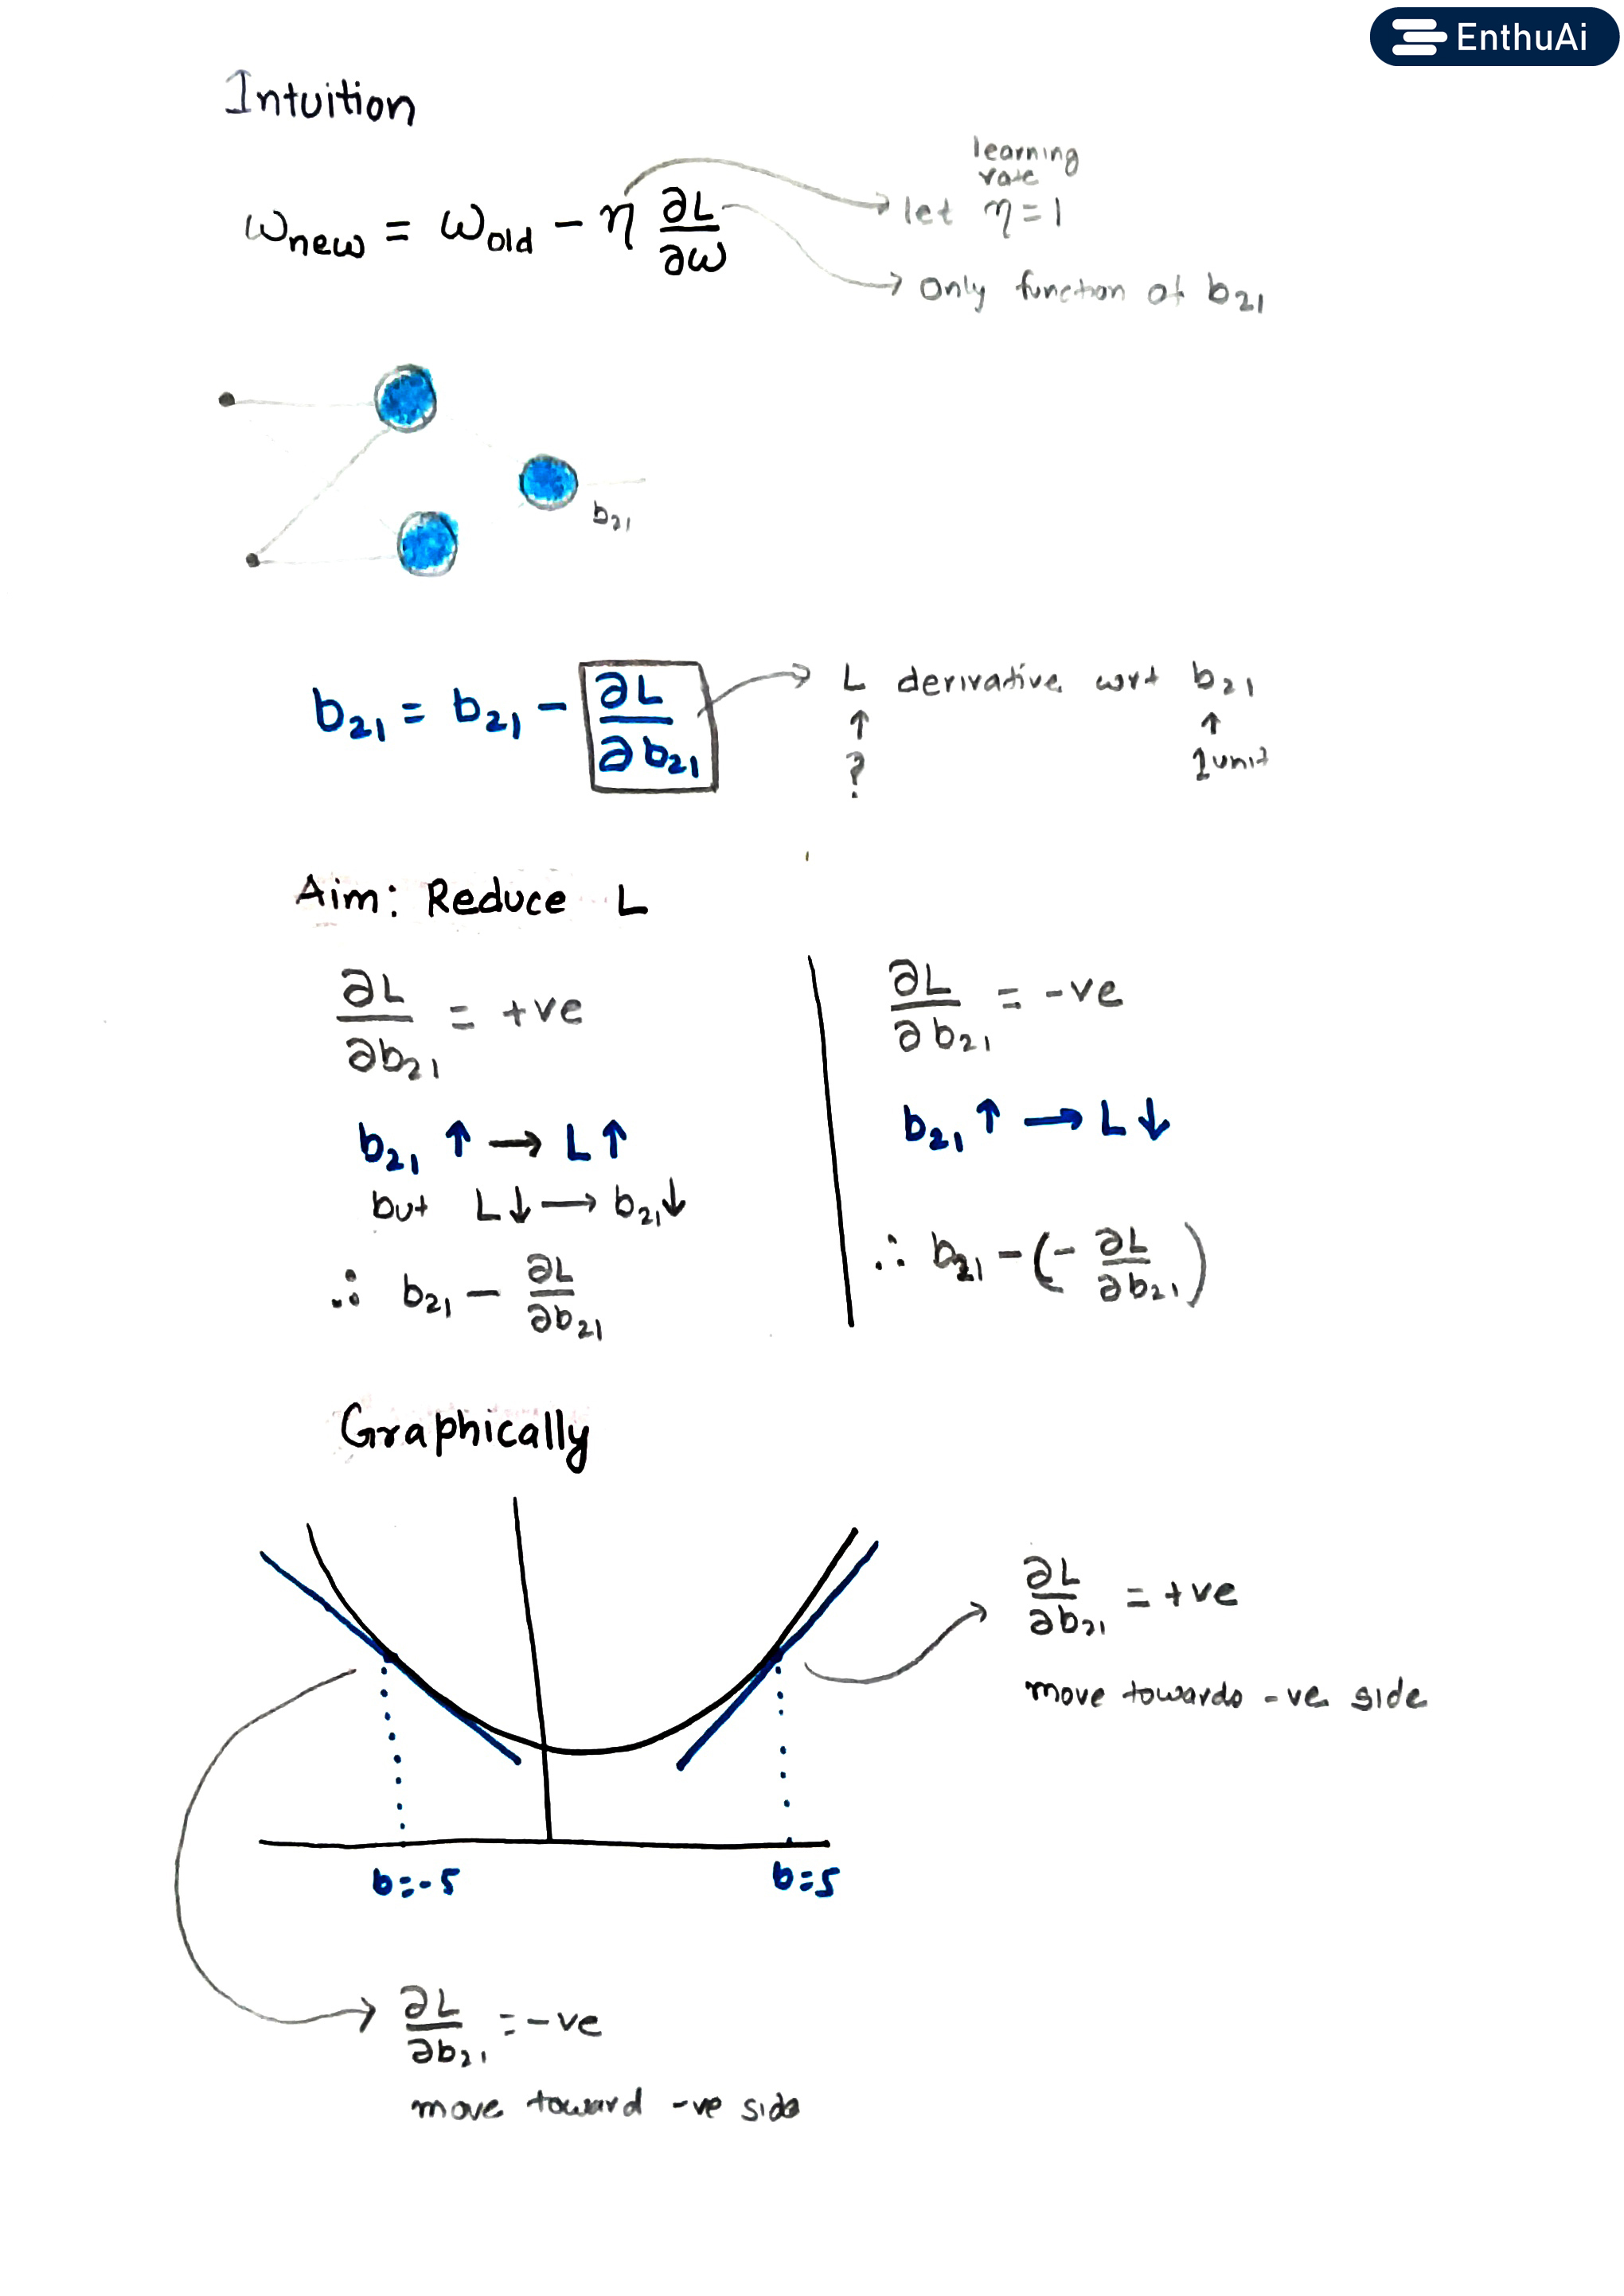 EnthuAi
Intuition
learning
rate
let η = 1
ω_new = ω_old − η ∂L/∂ω
Only function of b₂₁
b₂₁
b₂₁ = b₂₁ − ∂L/∂b₂₁
L derivative wrt b₂₁
↑ ↑
? 1 unit
Aim: Reduce L
∂L/∂b₂₁ = +ve
b₂₁ ↑ → L ↑
but L ↓ → b₂₁ ↓
∴ b₂₁ − ∂L/∂b₂₁
∂L/∂b₂₁ = -ve
b₂₁ ↑ → L ↓
∴ b₂₁ − (− ∂L/∂b₂₁)
Graphically
∂L/∂b₂₁ = +ve
move towards -ve side
b=-5
b=5
∂L/∂b₂₁ = -ve
move toward -ve side